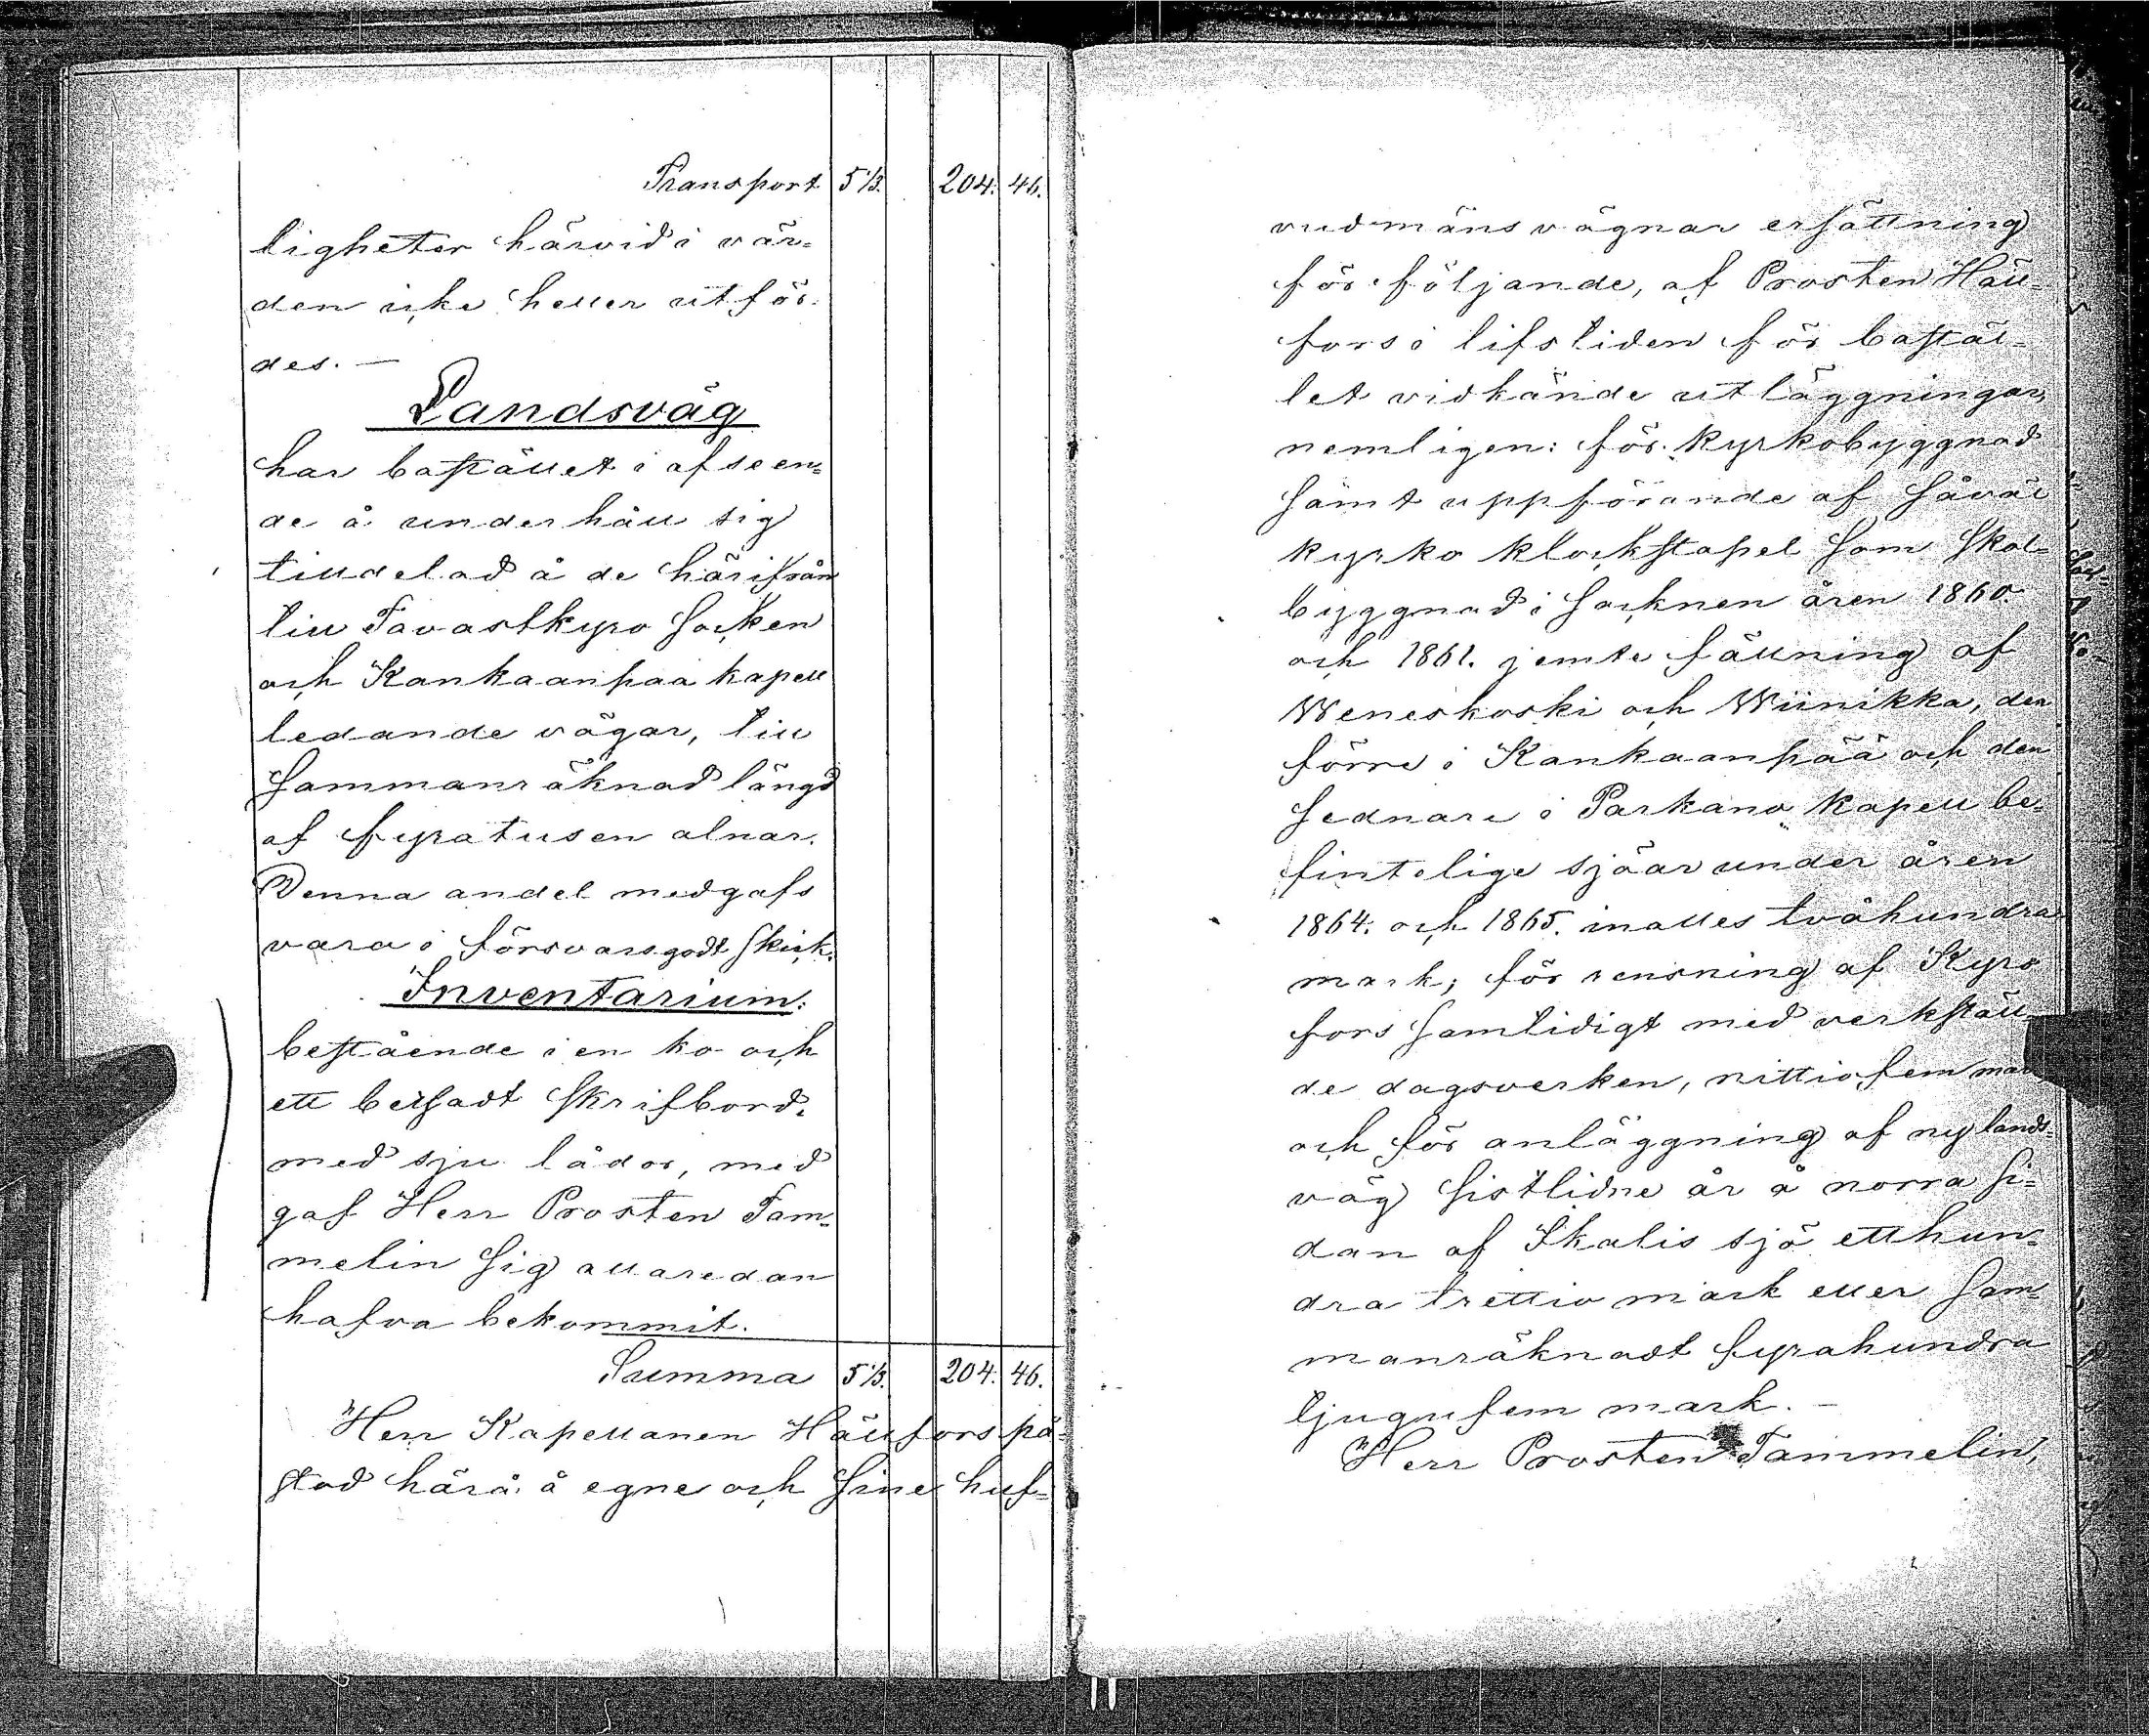 Transport 5 1/3. 204. 46.
ligheter härvid i vär-
den icke heller utför-
des. —
Landsväg
har bostället i afseen-
de å underhåll sig
tilldelad å de härifrån
till Tavastkyro Socken
och Kankaanpää kapell
ledande vägar, till
Sammanräknad längd
af fyratusen alnar.
Denna andel medgafs
vara i försvarsgodt skick.
Inventarium.
bestående i en ko och
ett betsadt Skrifbord.
med sju lådor, med
gaf Herr Prosten Tam-
melin Sig allaredan
hafva bekommit.
Summa 5 1/3. 204. 46.
Herr Kapellanen Hällfors på-
stod härå å egne och Sine huf-
vudmäns vägnar ersättning
för följande, af Prosten Häll-
fors i lifstiden för bostäl-
let vidkände utläggningar,
nemligen: för kyrkobyggnad
Samt uppförande af Såväl
kyrko klockstapel Som Skol-
byggnad i Socknen åren 1860.
och 1861. jemte fällning af
Weneskoski och Wiinikka, den
förre i Kankaanpää och den
Sednare i Parkano kapell be-
fintelige sjöar under åren
1864. och 1865. inalles tvåhundra
mark; för rensning af Kyro
fors Samtidigt med verkställ-
de dagsverken, nittiofem mark
och för anläggning af ny lands-
väg Sistlidne år å norra Si-
dan af Ikalis sjö etthun-
dra trettio mark eller Sam-
manräknadt fyrahundra
tjugufem mark. —
Herr Prosten Tammelin,